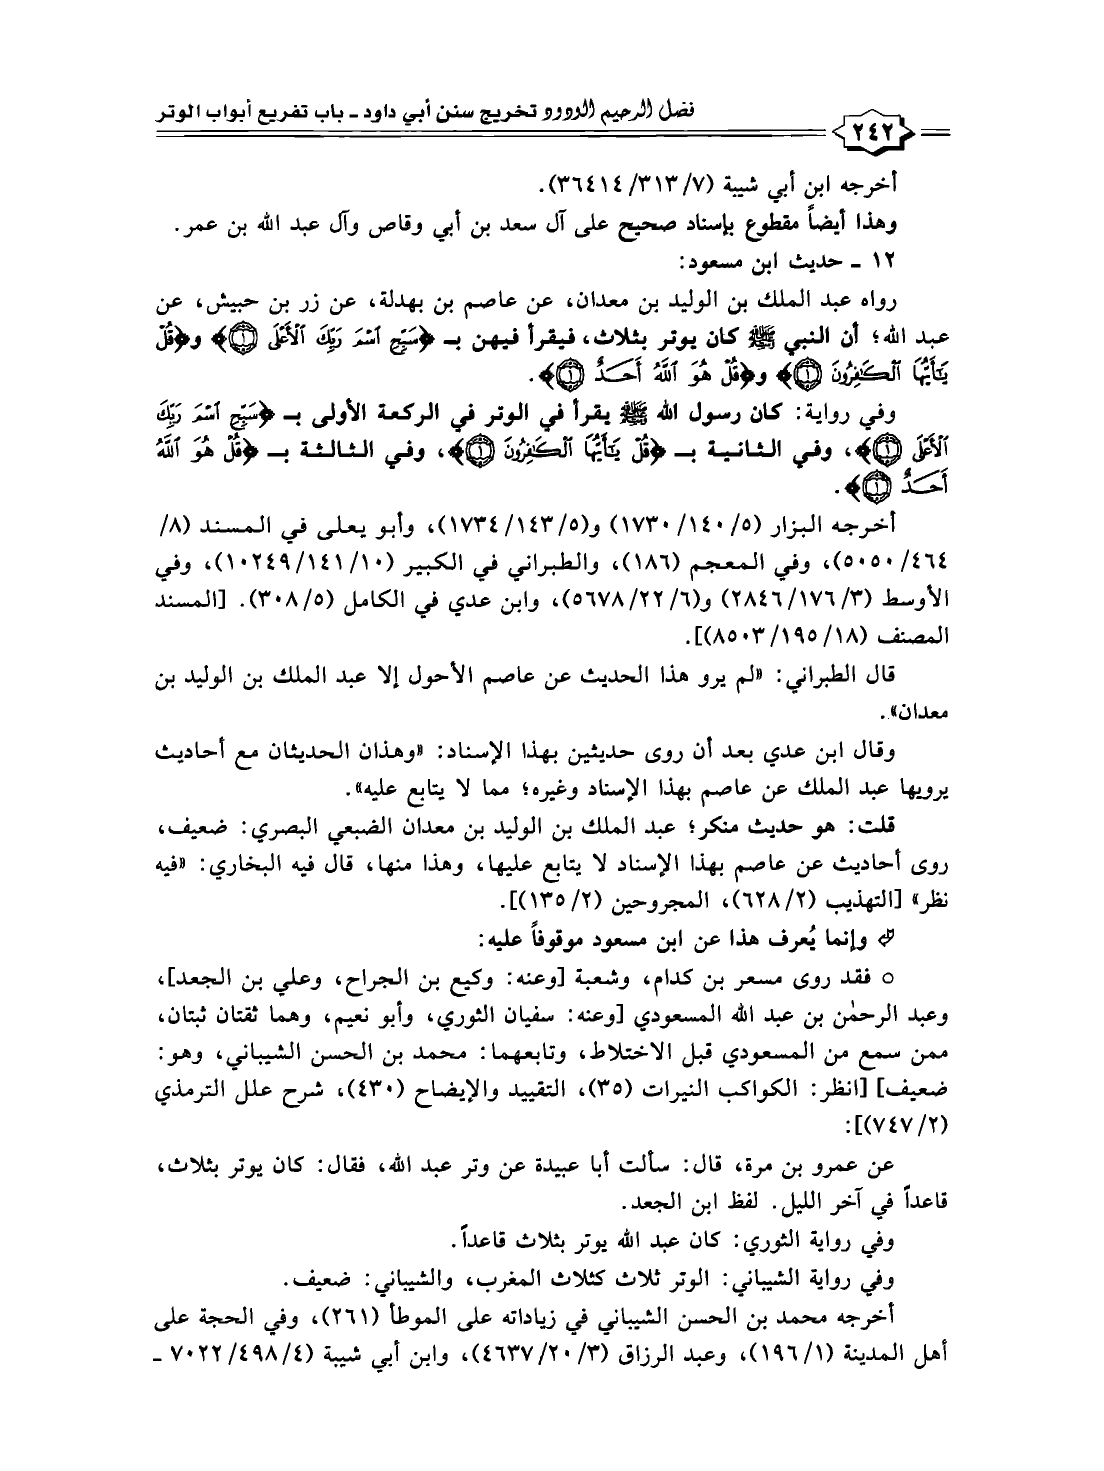 فضل الرحيم الودود تخريج سنن أبي داود ـ باب تفريع أبواب الوتر
٢٤٢
أخرجه ابن أبي شيبة (٧/ ٣١٣/ ٣٦٤١٤).
وهذا أيضاً مقطوع بإسناد صحيح على آل سعد بن أبي وقاص وآل عبد الله بن عمر.
١٢ ـ حديث ابن مسعود:
رواه عبد الملك بن الوليد بن معدان، عن عاصم بن بهدلة، عن زر بن حبيش، عن
عبد الله؛ أن النبي ﷺ كان يوتر بثلاث، فيقرأ فيهن بـ ﴿سَبِّحِ ٱسْمَ رَبِّكَ ٱلْأَعْلَى ۝١﴾ و﴿قُلْ
يَـٰٓأَيُّهَا ٱلْكَـٰفِرُونَ ۝١﴾ و﴿قُلْ هُوَ ٱللَّهُ أَحَدٌ ۝١﴾.
وفي رواية: كان رسول الله ﷺ يقرأ في الوتر في الركعة الأولى بـ ﴿سَبِّحِ ٱسْمَ رَبِّكَ
ٱلْأَعْلَى ۝١﴾، وفي الثانية بـ ﴿قُلْ يَـٰٓأَيُّهَا ٱلْكَـٰفِرُونَ ۝١﴾، وفي الثالثة بـ ﴿قُلْ هُوَ ٱللَّهُ
أَحَدٌ ۝١﴾.
أخرجه البزار (٥/ ١٤٠/ ١٧٣٠) و(٥/ ١٤٣/ ١٧٣٤)، وأبو يعلى في المسند (٨/
٤٦٤/ ٥٠٥٠)، وفي المعجم (١٨٦)، والطبراني في الكبير (١٠/ ١٤١/ ١٠٢٤٩)، وفي
الأوسط (٣/ ١٧٦/ ٢٨٤٦) و(٦/ ٢٢/ ٥٦٧٨)، وابن عدي في الكامل (٥/ ٣٠٨). [المسند
المصنف (١٨/ ١٩٥/ ٨٥٠٣)].
قال الطبراني: «لم يرو هذا الحديث عن عاصم الأحول إلا عبد الملك بن الوليد بن
معدان».
وقال ابن عدي بعد أن روى حديثين بهذا الإسناد: «وهذان الحديثان مع أحاديث
يرويها عبد الملك عن عاصم بهذا الإسناد وغيره؛ مما لا يتابع عليه».
قلت: هو حديث منكر؛ عبد الملك بن الوليد بن معدان الضبعي البصري: ضعيف،
روى أحاديث عن عاصم بهذا الإسناد لا يتابع عليها، وهذا منها، قال فيه البخاري: «فيه
نظر» [التهذيب (٢/ ٦٢٨)، المجروحين (٢/ ١٣٥)].
وإنما يُعرف هذا عن ابن مسعود موقوفاً عليه:
○ فقد روى مسعر بن كدام، وشعبة [وعنه: وكيع بن الجراح، وعلي بن الجعد]،
وعبد الرحمٰن بن عبد الله المسعودي [وعنه: سفيان الثوري، وأبو نعيم، وهما ثقتان ثبتان،
ممن سمع من المسعودي قبل الاختلاط، وتابعهما: محمد بن الحسن الشيباني، وهو:
ضعيف] [انظر: الكواكب النيرات (٣٥)، التقييد والإيضاح (٤٣٠)، شرح علل الترمذي
(٢/ ٧٤٧)]:
عن عمرو بن مرة، قال: سألت أبا عبيدة عن وتر عبد الله، فقال: كان يوتر بثلاث،
قاعداً في آخر الليل. لفظ ابن الجعد.
وفي رواية الثوري: كان عبد الله يوتر بثلاث قاعداً.
وفي رواية الشيباني: الوتر ثلاث كثلاث المغرب، والشيباني: ضعيف.
أخرجه محمد بن الحسن الشيباني في زياداته على الموطأ (٢٦١)، وفي الحجة على
أهل المدينة (١/ ١٩٦)، وعبد الرزاق (٣/ ٢٠/ ٤٦٣٧)، وابن أبي شيبة (٤/ ٤٩٨/ ٧٠٢٢ ـ